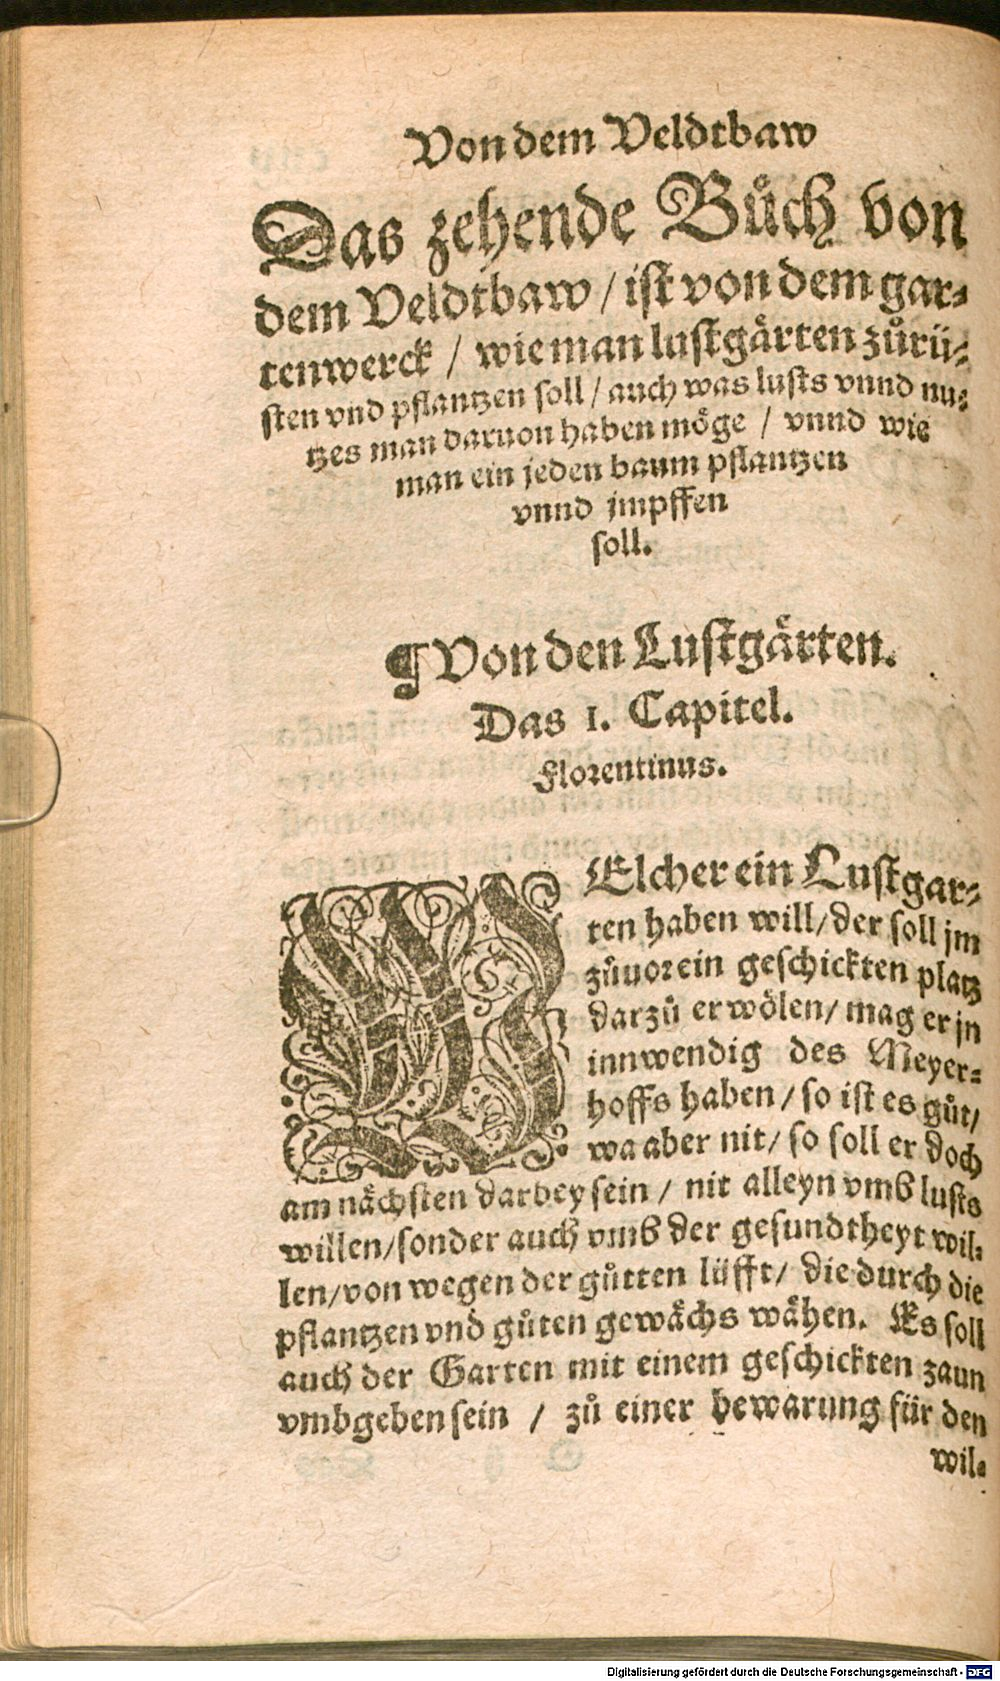 Von dem Veldtbaw
Das zehende Bůch von
dem Veldtbaw / ist von dem gar-
tenwerck / wie man lustgärten zůrü-
sten vnd pflantzen soll / auch was lusts vnnd nu-
tzes man daruon haben möge / vnnd wie
man ein jeden baum pflantzen
vnnd jmpffen
soll.
¶ Von den Lustgärten.
Das 1. Capitel.
Florentinus.
WElcher ein Lustgar-
ten haben will / der soll jm
zůuor ein geschickten platz
darzů erwölen / mag er jn
innwendig des Meyer-
hoffs haben / so ist es gůt /
wa aber nit / so soll er doch
am nächsten darbey sein / nit alleyn vmb lusts
willen / sonder auch vmb der gesundtheyt wil-
len / von wegen der gůtten lüfft / die durch die
pflantzen vnd gůten gewächs wähen. Es soll
auch der Garten mit einem geschickten zaun
vmbgeben sein / zů einer bewarung für den
wil-
Digitalisierung gefördert durch die Deutsche Forschungsgemeinschaft - DFG